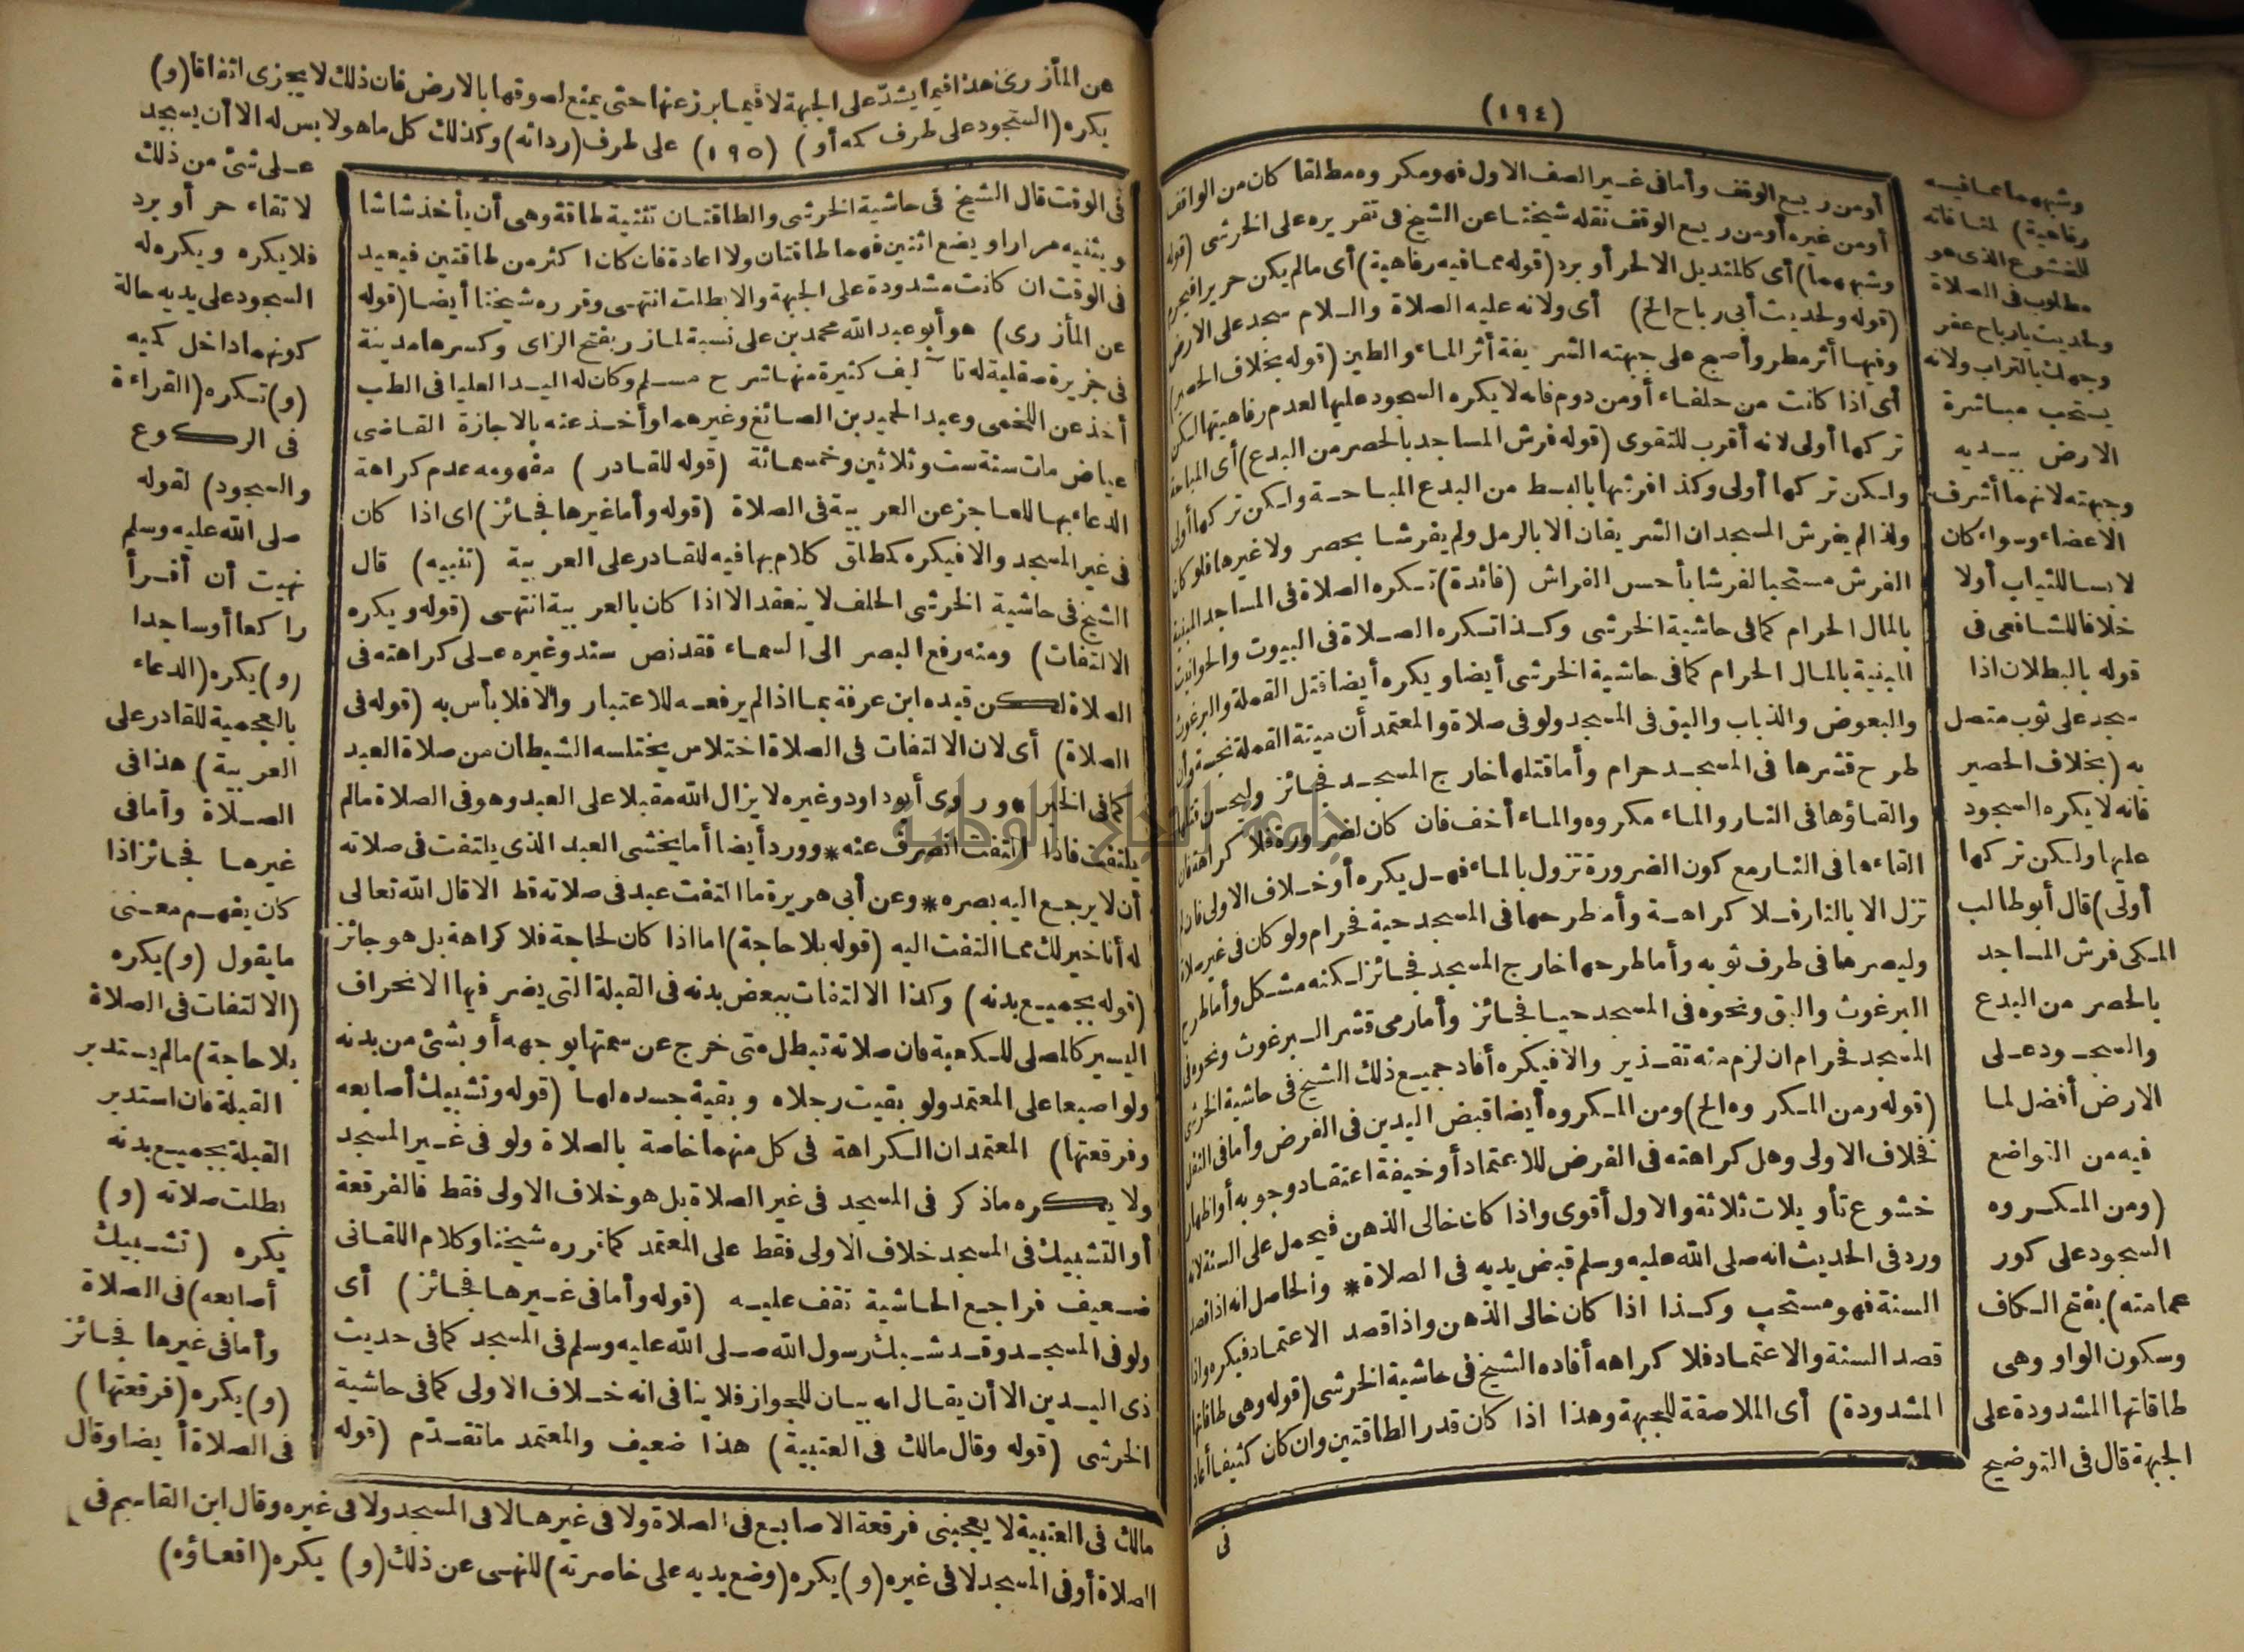 (١٩٤)
وشبههما مما فيه
رفاهية) لمنافاته
للخشوع الذى هو
مطلوب فى الصلاة
ولحديث يارباح عفر
وجهك بالتراب ولانه
يستحب مباشرة
الارض بيديه
وجبهته لانهما أشرف
الاعضاء وسواء كان
لابسا للثياب أولا
خلافا للشافعى فى
قوله بالبطلان اذا
سجد على ثوب متصل
به (بخلاف الحصير
فانه لا يكره السجود
عليها ولكن تركها
أولى) قال أبو طالب
المكى فرش المساجد
بالحصر من البدع
والسجود على
الارض أفضل لما
فيه من التواضع
(ومن المكروه
السجود على كور
عمامته) بفتح الكاف
وسكون الواو وهى
طاقاتها المشدودة على
الجبهة قال فى التوضيح
أو من ريع الوقف وأما فى غير الصف الاول فهو مكروه مطلقا كان من الواقف
أو من غيره أو من ريع الوقف نقله شيخنا عن الشيخ فى تقريره على الخرشى (قوله
وشبههما) أى كالمنديل الا لحر أو برد (قوله مما فيه رفاهية) أى مالم يكن حريرا فيحرم
(قوله ولحديث أبى رباح الخ) أى ولانه عليه الصلاة والسلام سجد على الارض
وفيها أثر مطر وأصبح على جبهته الشريفة أثر الماء والطين (قوله بخلاف الحصير)
أى اذا كانت من حلفاء أو من دوم فانه لا يكره السجود عليها لعدم رفاهيتها لكن
تركها أولى لانه أقرب للتقوى (قوله فرش المساجد بالحصر من البدع) أى المباحة
ولكن تركها أولى وكذا فرشها بالبسط من البدع المباحة ولكن تركها أولى
ولذا لم يفرش المسجدان الشريفان الا بالرمل ولم يفرشا بحصر ولا غيرها فلو كان
الفرش مستحبا لفرشا بأحسن الفراش (فائدة) تكره الصلاة فى المساجد المبنية
بالمال الحرام كما فى حاشية الخرشى وكذا تكره الصلاة فى البيوت والحوانيت
المبنية بالمال الحرام كما فى حاشية الخرشى أيضا ويكره أيضا قتل القملة والبرغوث
والبعوض والذباب والبق فى المسجد ولو فى صلاة والمعتمد أن ميتة القملة نجسة وأن
طرح قشرها فى المسجد حرام وأما قتلها خارج المسجد فجائز وليحسن قتلها
والقاؤها فى النار والماء مكروه والماء أخف فان كان لضرورة فلا كراهة فان
القاءها فى النار مع كون الضرورة تزول بالماء فهل يكره أو خلاف الاولى فان لم
تزل الا بالنار فلا كراهة وأما طرحها فى المسجد حية فحرام ولو كان فى غير صلاة
وليصرها فى طرف ثوبه وأما طرحها خارج المسجد فجائز لكنه مشكل وأما طرح
البرغوث والبق ونحوه فى المسجد حيا فجائز وأما رمى قشر البرغوث ونحوه فى
المسجد فحرام ان لزم منه تقذير والا فيكره أفاد جميع ذلك الشيخ فى حاشية الخرشى
(قوله ومن المكروه الخ) ومن المكروه أيضا قبض اليدين فى الفرض وأما فى النفل
فخلاف الاولى وهل كراهته فى الفرض للاعتماد أو خيفة اعتقاد وجوبه أو اظهار
خشوع تأويلات ثلاثة والاول أقوى واذا كان خالى الذهن فيحمل على السنة لانه
ورد فى الحديث انه صلى الله عليه وسلم قبض يديه فى الصلاة * والحاصل انه اذا قصد
السنة فهو مستحب وكذا اذا كان خالى الذهن واذا قصد الاعتماد فيكره واذا
قصد السنة والاعتماد فلا كراهه أفاده الشيخ فى حاشية الخرشى (قوله وهى طاقاتها
المشدودة) أى الملاصقة للجبهة وهذا اذا كان قدر الطاقتين وان كان كثيفا أعاد
فى
عن المأزرى هذا فيما يشد على الجبهة لا فيما برز عنها حتى يمنع لصوقها بالارض فان ذلك لا يجزى اتفاقا (و)
يكره (السجود على طرف كمه أو) (١٩٥) على طرف (ردائه) وكذلك كل ما هو لابس له الا أن يسجد
على شئ من ذلك
لاتقاء حر أو برد
فلا يكره ويكره له
السجود على يديه حالة
كونهما داخل كميه
(و) تكره (القراءة
فى الركوع
والسجود) لقوله
صلى الله عليه وسلم
نهيت أن أقرأ
راكعا أو ساجدا
(و) يكره (الدعاء
بالعجمية للقادر على
العربية) هذا فى
الصلاة وأما فى
غيرها فجائز اذا
كان يفهم معنى
ما يقول (و) يكره
(الالتفات فى الصلاة
بلا حاجة) مالم يستدبر
القبلة فان استدبر
القبلة بجميع بدنه
بطلت صلاته (و)
يكره (تشبيك
أصابعه) فى الصلاة
وأما فى غيرها فجائز
(و) يكره (فرقعتها)
فى الصلاة أيضا وقال
فى الوقت قال الشيخ فى حاشية الخرشى والطاقتان تثنية طاقة وهى أن يأخذ شاشا
ويثنيه مرارا ويضع اثنتين فهما طاقتان ولا اعادة فان كان اكثر من طاقتين فيعيد
فى الوقت ان كانت مشدودة على الجبهة والا بطلت انتهى وقرره شيخنا أيضا (قوله
عن المأزرى) هو أبو عبد الله محمد بن على نسبة لمازر بفتح الزاى وكسرها مدينة
فى جزيرة صقلية له تآليف كثيرة منها شرح مسلم وكان له اليد العليا فى الطب
أخذ عن اللخمى وعبد الحميد بن الصائغ وغيرهما وأخذ عنه بالاجازة القاضى
عياض مات سنة ست وثلاثين وخمسمائة (قوله للقادر) مفهومه عدم كراهة
الدعاء بها للعاجز عن العربية فى الصلاة (قوله وأما غيرها فجائز) اى اذا كان
فى غير المسجد والا فيكره كمطلق كلام بها فيه للقادر على العربية (تنبيه) قال
الشيخ فى حاشية الخرشى الحلف لا ينعقد الا اذا كان بالعربية انتهى (قوله ويكره
الالتفات) ومنه رفع البصر الى السماء فقد نص سند وغيره على كراهته فى
الصلاة لكن قيده ابن عرفة بما اذا لم يرفعه للاعتبار والا فلا بأس به (قوله فى
الصلاة) أى لان الالتفات فى الصلاة اختلاس يختلسه الشيطان من صلاة العبد
كما فى الخبر * وروى أبو داود وغيره لا يزال الله مقبلا على العبد وهو فى الصلاة مالم
يلتفت فاذا التفت انصرف عنه * وورد أيضا أما يخشى العبد الذى يلتفت فى صلاته
أن لا يرجع اليه بصره * وعن أبى هريرة ما التفت عبد فى صلاته قط الا قال الله تعالى
له أنا خير لك مما التفت اليه (قوله بلا حاجة) اما اذا كان لحاجة فلا كراهة بل هو جائز
(قوله بجميع بدنه) وكذا الالتفات ببعض بدنه فى القبلة التى يضر فيها الانحراف
اليسير كالمصلى للكعبة فان صلاته تبطل متى خرج عن سمتها بوجهه أو بشئ من بدنه
ولو اصبعا على المعتمد ولو بقيت رجلاه وبقية جسده لها (قوله وتشبيك أصابعه
وفرقعتها) المعتمد ان الكراهة فى كل منهما خاصة بالصلاة ولو فى غير المسجد
ولا يكره ماذكر فى المسجد فى غير الصلاة بل هو خلاف الاولى فقط فالفرقعة
أو التشبيك فى المسجد خلاف الاولى فقط على المعتمد كما قرره شيخنا وكلام اللقانى
ضعيف فراجع الحاشية تقف عليه (قوله وأما فى غيرها فجائز) أى
ولو فى المسجد وقد شبك رسول الله صلى الله عليه وسلم فى المسجد كما فى حديث
ذى اليدين الا أن يقال انه بيان للجواز فلا ينافى انه خلاف الاولى كما فى حاشية
الخرشى (قوله وقال مالك فى العتبية) هذا ضعيف والمعتمد ما تقدم (قوله
مالك فى العتبية لا يعجبنى فرقعة الاصابع فى الصلاة ولا فى غيرها لا فى المسجد ولا فى غيره وقال ابن القاسم فى
الصلاة أو فى المسجد لا فى غيره (و) يكره (وضع يديه على خاصرته) للنهى عن ذلك (و) يكره (اقعاؤه)
جامعة النجاح الوطنية